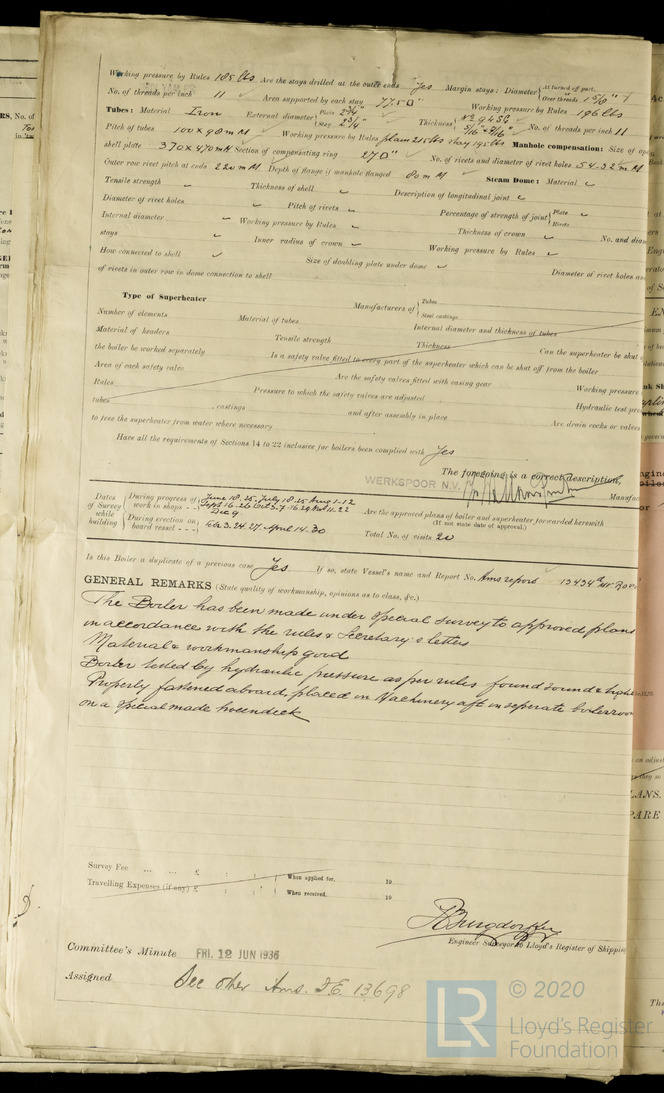 Working pressure by Rules 185 lbs Are the stays drilled at the outer ends Yes Margin stays: Diameter { At turned off part, Over threads 1 5/8"
No. of threads per inch 11 Area supported by each stay 77.50" Working pressure by Rules 196 lbs
Tubes: Material Iron External diameter { Plain 2 3/4" Stay 2 3/4" Thickness { No. of threads per inch 11
Pitch of tubes 100 x 98 mM Working pressure by Rules plain 215 lbs stay 195 lbs Manhole compensation: Size of
shell plate 370 x 470 mM Section of compensating ring 270" No. of rivets and diameter of rivet holes 54-32 mM
Outer row rivet pitch at ends 220 mM Depth of flange if manhole flanged 80 mM Steam Dome: Material
Tensile strength Thickness of shell Description of longitudinal joint
Diameter of rivet holes Pitch of rivets Percentage of strength of joint { Plate Rivets
Internal diameter Working pressure by Rules Thickness of crown No. and
stays Inner radius of crown Working pressure by Rules
How connected to shell Size of doubling plate under dome Diameter of rivet holes
of rivets in outer row in dome connection to shell
Type of Superheater Manufacturers of { Tubes Steel castings
Number of elements Material of tubes Internal diameter and thickness of tubes
Material of headers Tensile strength Thickness Can the superheater be shut
the boiler be worked separately Is a safety valve fitted to every part of the superheater which can be shut off from the boiler
Area of each safety valve Are the safety valves fitted with easing gear Working pressure
Rules Pressure to which the safety valves are adjusted Hydraulic test
tubes , castings and after assembly in place Are drain cocks or valves
to free the superheater from water where necessary
Have all the requirements of Sections 14 to 22 inclusive for boilers been complied with Yes
The foregoing is a correct description,
WERKSPOOR N.V.
Dates of Survey while building { During progress of work in shops - - June 18.25. July 18.25 Aug 1-12 Sept 16-26 Oct 3.7.16.29 Nov 11.22 Dec 9
During erection on board vessel - - - Feb 3.24.27. April 14.30
Are the approved plans of boiler and superheater forwarded herewith
(If not state date of approval.)
Total No. of visits 20
Is this Boiler a duplicate of a previous case Yes If so, state Vessel's name and Report No. Ams report 13434
GENERAL REMARKS (State quality of workmanship, opinions as to class, &c.)
The Boiler has been made under special survey to approved plans
in accordance with the rules & Secretary's letters
Material & workmanship good
Boiler tested by hydraulic pressure as per rules found sound &
Properly fastened aboard, placed in Machinery aft in seperate
on a special made
Survey Fee ... ... £ : : When applied for, 19
Travelling Expenses (if any) £ : : When received, 19
Engineer Surveyor to Lloyd's Register of
Committee's Minute FRI. 12 JUN 1936
Assigned See other Ams. F.E. 13698
LR © 2020
Lloyd's Register
Foundation